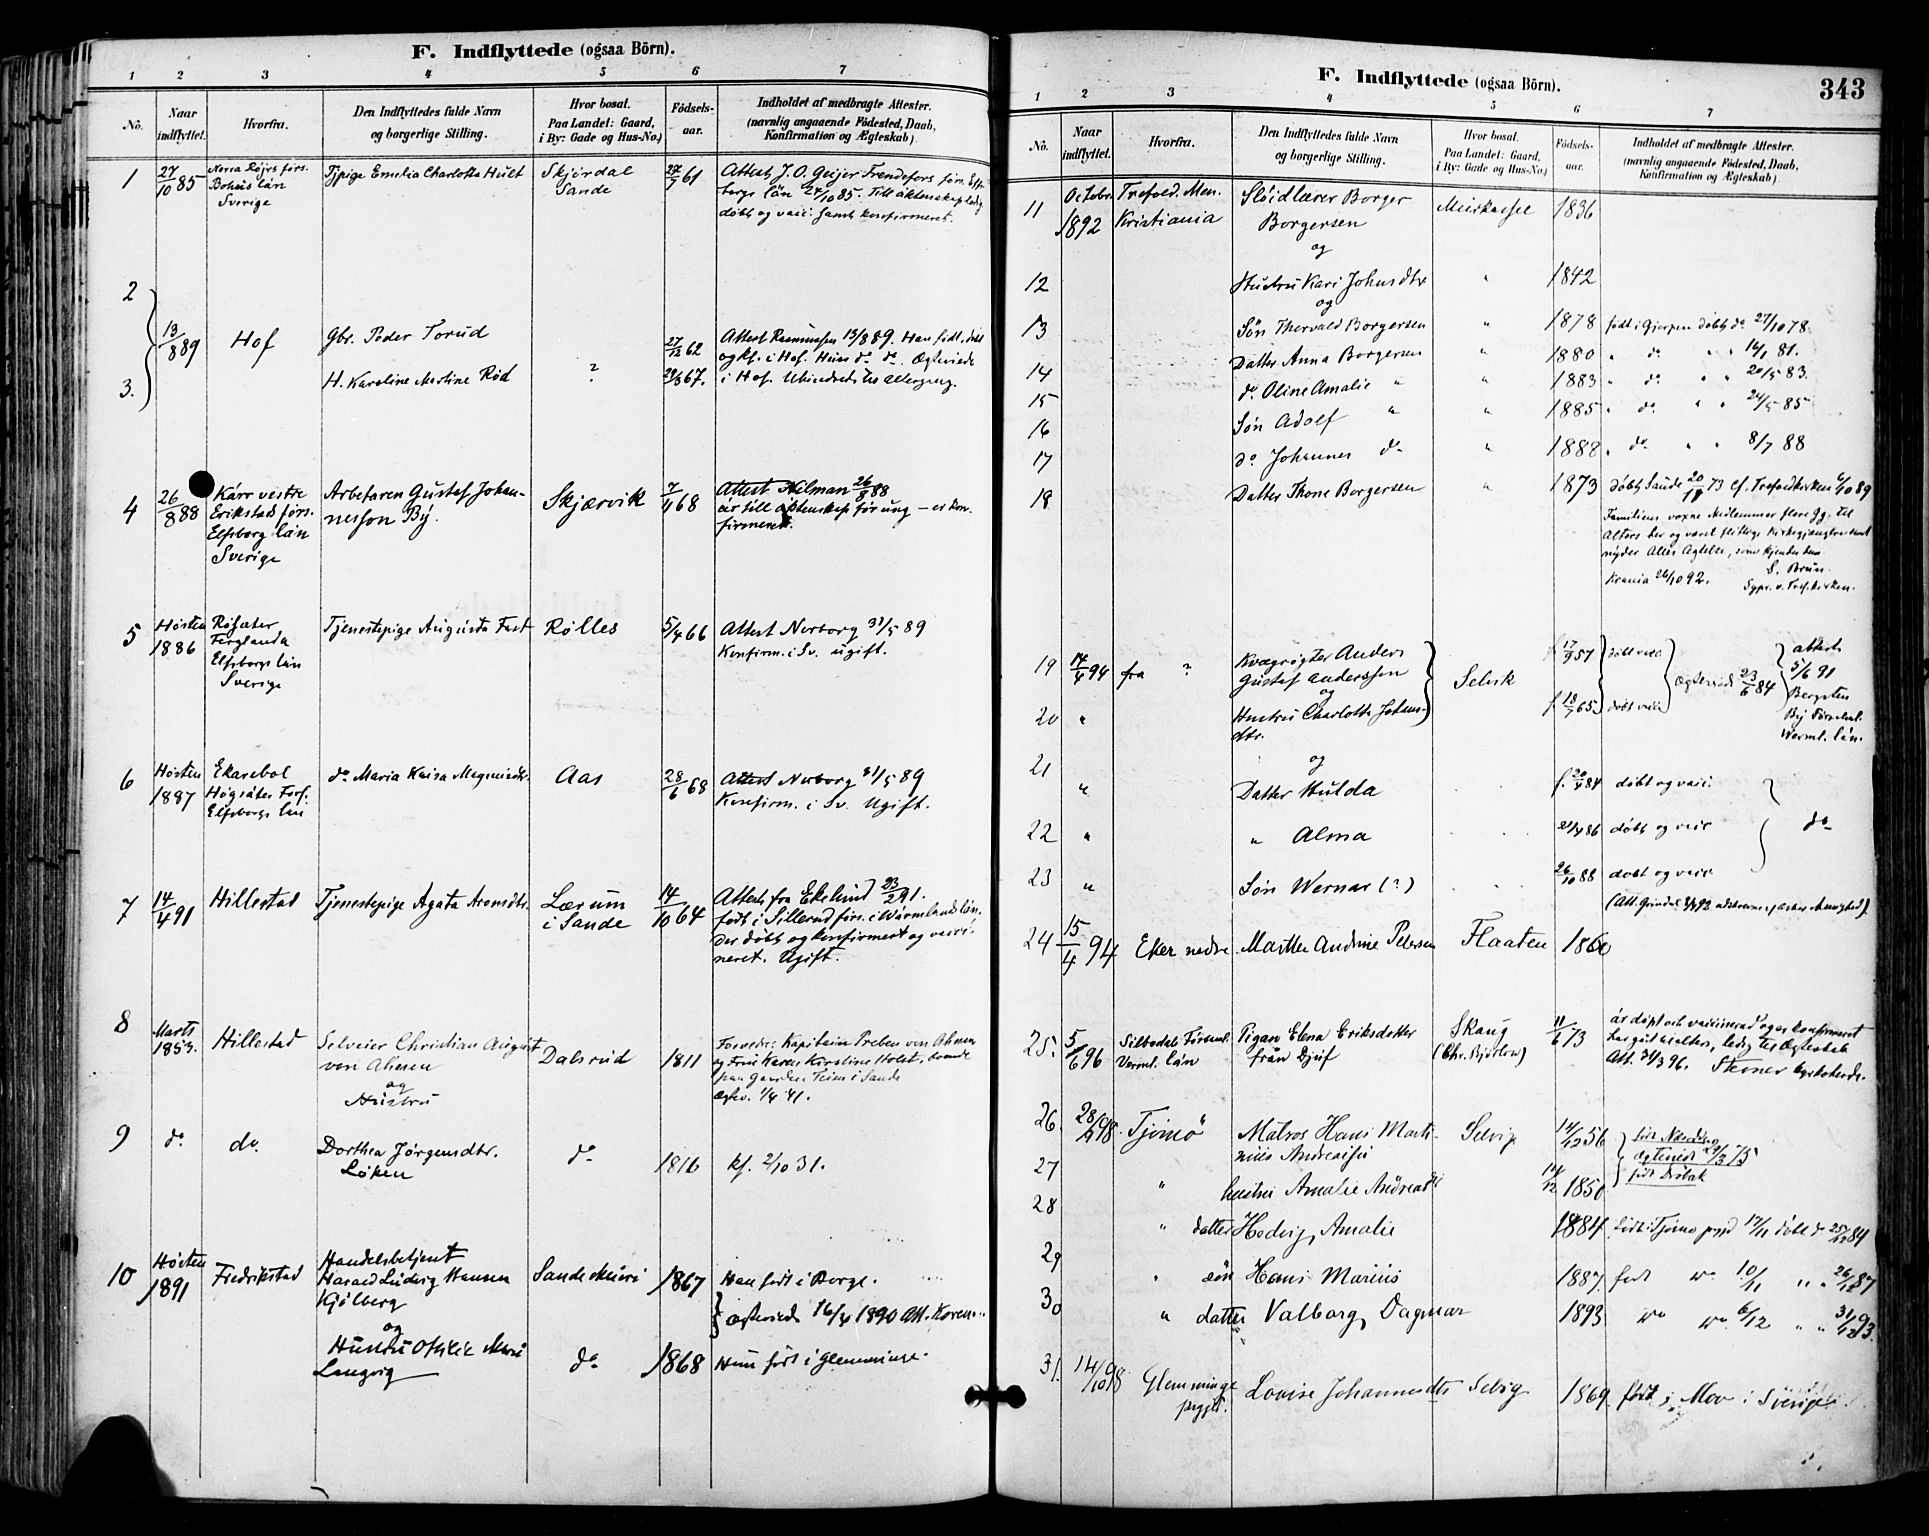 F. Indflyttede (ogsaa Börn).
1 2 3 4 5 6 7
No. Naar indflyttet. Hvorfra. Den Indflyttedes fulde Navn og borgerlige Stilling. Hvor bosat. Paa Landet: Gaard, i By: Gade og Hus-No.) Födsels-aar. Indholdet af medbragte Attester. (navnlig angaaende Födested, Daab, Konfirmation og Ægteskab)
1 27/10 85 förs. Bohus län Sverige Tjpige Emelia Charlotta Hult Skjørdal Sande 27/7 61 Attest J. O. Geijer Frendefors förs. Elfsborgs län 24/10 85. Till äktenskap ledig
døbt og vacc. samt konfirmeret.
2 13/8 89 Hof Gbr. Peder Torud 27/12 62 Attest Rasmussen 13/8 89. Han født, døbt
og kf. i Hof. Hun do do. Ægteviede
3. H. Karoline Mertine Rød ? 29/3 67. i Hof.
4 26/8 88 Kärr vestre Erikstad förs. Elfsborg län Sverige Arbetaren Gustaf Johannesson By. Skjærvik 7/4 68 Attest Hilman 26/8 88
är till äktenskap för ung – er konfirmeret.
5 Høsten 1886 Ferglanda Elfsborgs län Sverige Tjenestepige Augusta Fast Rølles 5/4 66 Attest Nerborg 31/5 89
Konfirm. i Sv. ugift.
6 Høsten 1887 Ekarebol Högsäter Fors. Elfsborgs län do Maria Kaisa Magnusdtr. Aas 28/6 68 Attest Nerborg 31/5 89
Konfirm. i Sv. Ugift.
7 14/4 91 Hillestad Tjenestepige Agata Aronsdtr. Lærum i Sande 14/10 64 Attest fra Ekelund 23/2 91.
født i Sillerud förs. i Wärmlands län,
der døbt og konfirmeret og vaccineret. Ugift.
8 Marts 1853. Hillestad Selveier Christian August von Ahnen
og
Hustru Dalsrud 1811 Forældre: Kapitain Preben von Ahnen
og Frue Karen Kirstine Holst, boende
paa Gaarden Teien i Sande
Ægtev. 1/4 41.
9 do do. Dorthea Jørgensdtr. Løken do 1816 kf. 2/10 31.
10 Høsten 1891 Fredrikstad Handelsbetjent Harald Ludvig Hansen Kjølberg Sande 1867 Han født i Borge.
og
ægteviede 16/4 1890 Att.
Hustru Othilie Marie Langvig do 1868 Hun født i Glemminge.
F. Indflyttede (ogsaa Börn).
343
1 2 3 4 5 6 7
No. Naar indflyttet. Hvorfra. Den Indflyttedes fulde Navn og borgerlige Stilling. Hvor bosat. Paa Landet: Gaard, i By: Gade og Hus-No.) Födsels-aar. Indholdet af medbragte Attester. (navnlig angaaende Födested, Daab, Konfirmation og Ægteskab)
11 Octobr. 1892 Trefold. Men. Kristiania Sløidlærer Borger Borgersen 1836
og
12 Hustru Kari Johnsdtr " 1842
og
13 Søn Thorvald Borgersen " 1878 født i Gjerpen døbt do 27/10 78.
14 Datter Anna Borgersen " 1880 " do " " 16/1 81.
15 do Oline Amalie " " 1883 " do " " 20/5 83.
16 Søn Adolf " " 1885 " do. " " 24/5 85
17 do Johannes do " 1888 " do " " 8/7 88
18 Datter Thone Borgersen " 1873 døbt Sande 73 cf. Trefoldkirken 6/10 89
Familiens voxne Medlemmer flere Gg. til
Alters her og været flittige Kirkegjængere samt
nyder Alles Agtelse, som kjender dem
Krania 26/10 92. S. Bruun
Sgpr. v. Tref. kirken.
19 14/4 94 fra ? Kvægrøgter Anders Gustaf Anderssen Selvik f. 17/9 57 døbt vacc. Ægteviede 23/6 84 attest 5/6 91
og
20 " Hustru Charlotta Johansdtr. f. 18/7 65 døbt vacc. WermL. län.
og
21 " Datter Hulda f. 20/4 84 døbt og vacc.
22 " " Alma 21/4 86 døbt og vacc do
23 " Søn Wernar (?) 26/10 88 døbt og vacc
24 15/4 94 Eker nedre Marthe Andrine Petersen Flaaten 1860
25. 5/6 96 Silbodals Församl. Verml. län Pigan Elena Eriksdotter från Djuf Skaug (Chr. Bjørlow) 11/6 73 är döpt och vaccinerad oger konfirmeret
ledig til Ægteskab
Att. 31/3 96. kyrkoherde.
26. 28/9 98 Tjømø Matros Hans Martinius Andreassen Selvig 14/12 56
Ægteviede 29/3 75
27 " hustru Amalie Andreasdt 14/12 1850 født Drøbak
28 " datter Hedvig Amalie 1884 født i Tjømø pgjd 17/11 døbt d 25/12 84
29 " søn Hans Marius 1887 født do 10/11 " " 26/12 87
30 " datter Valborg Dagmar 1893 do do 6/12 " " 31/12 93.
31. 14/10 98 Glemminge prgjd. Lovise Johannesdtr Selvig 1869 født i Mov i Sverige